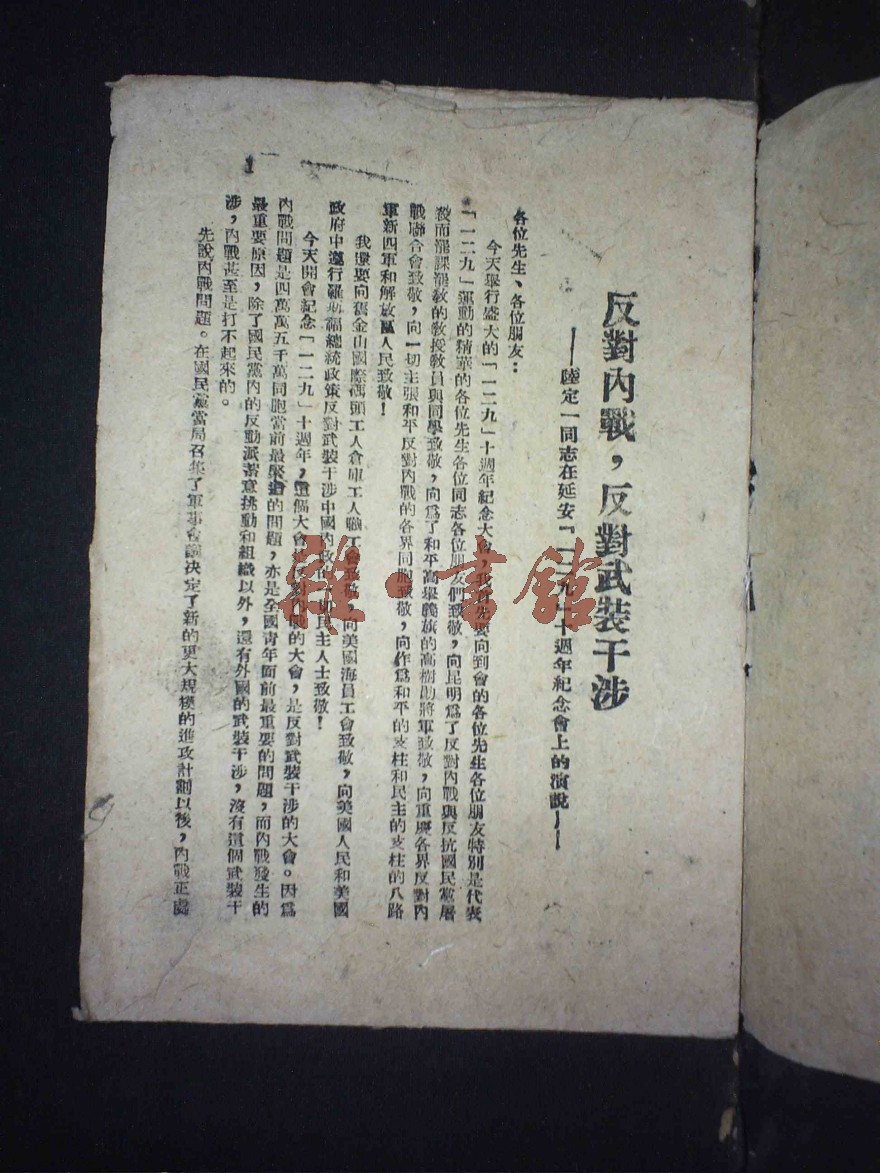 反對內戰，反對武裝干涉
——陸定一同志在延安「一二九」十週年紀念會上的演說——
各位先生、各位朋友：
今天舉行盛大的「一二九」十週年紀念大會，我首先要向到會的各位先生各位朋友特別是代表
「一二九」運動的精華的各位先生各位同志各位朋友們致敬，向昆明爲了反對內戰與反抗國民黨屠
殺而罷課罷教的教授教員與同學致敬，向爲了和平高舉義旗的高樹勛將軍致敬，向重慶各界反對內
戰聯合會致敬，向一切主張和平反對內戰的各界同胞致敬，向作爲和平的支柱和民主的支柱的八路
軍新四軍和解放區人民致敬！
我還要向舊金山國際碼頭工人倉庫工人職工會致敬，向美國海員工會致敬，向美國人民和美國
政府中遵行羅斯福總統政策反對武裝干涉中國內政的一切民主人士致敬！
今天開會紀念「一二九」十週年，這個大會是反對內戰的大會，是反對武裝干涉的大會。因爲
內戰問題是四萬萬五千萬同胞當前最緊迫的問題，亦是全國青年面前最重要的問題，而內戰發生的
最重要原因，除了國民黨內的反動派蓄意挑動和組織以外，還有外國的武裝干涉，沒有這個武裝干
涉，內戰甚至是打不起來的。
先說內戰問題。在國民黨當局召集了軍事會議決定了新的更大規模的進攻計劃以後，內戰正處
1
雜·書館